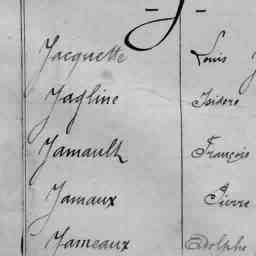 - J -
Jacquette Louis J
Jagline Isidore
Jamault François
Jamaux Pierre
Jameaux Adolphe